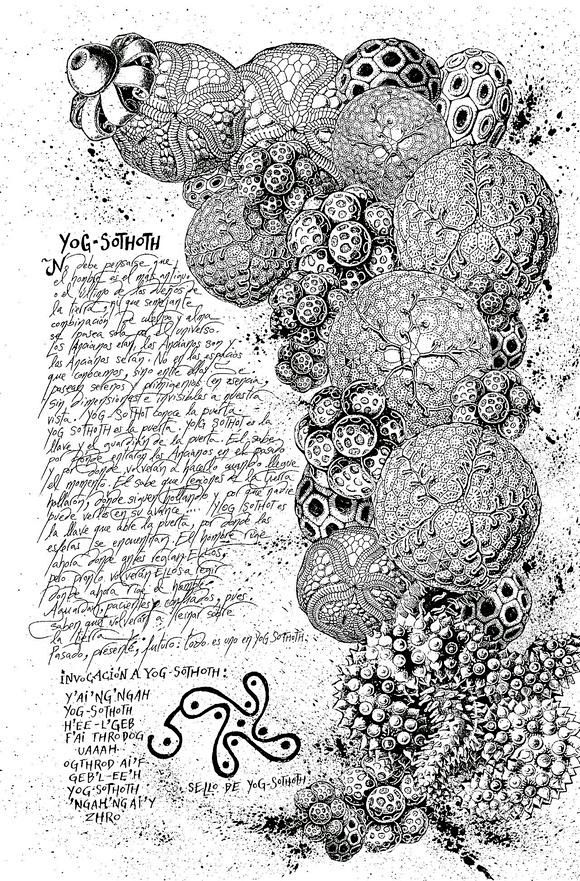 YOG-SOTHOTH
No debe pensarse que
el hombre es el más antiguo
o el último de los dueños de
la tierra, ni que semejante
combinación de cuerpo y alma
se pasea sola por el universo.
Los Ancianos eran, los Ancianos son y
los Ancianos serán. No en los espacios
que conocemos, sino entre ellos. Se
pasean serenos y primigenios en esencia,
sin dimensiones e invisibles a nuestra
vista. YOG-SOTHOT conoce la puerta.
YOG SOTHOTH es la puerta. YOG SOTHOT es la
llave y el guardián de la puerta. Él sabe
por donde entraron los Ancianos en el pasado
y por donde volverán a hacerlo cuando llegue
el momento. Él sabe que regiones de la tierra
hollaron, donde siguen hollando y por qué nadie
puede verles en su avance... YOG SOTHOT es
la llave que abre la puerta, por donde las
esferas se encuentran. El hombre rige
ahora donde antes regían ELLOS,
pero pronto volverán ELLOS a regir
donde ahora rige el hombre.
Aguardan, pacientes y confiados, pues
saben que volverán a reinar sobre
la tierra.
Pasado, presente, futuro: todo es uno en YOG SOTHOTH.
INVOCACIÓN A YOG-SOTHOTH:
Y'AI'NG'NGAH
YOG-SOTHOTH
H'EE-L'GEB
F'AI THRODOG
UAAAH
OGTHROD AI'F
GEB'L-EE'H
YOG-SOTHOTH
'NGAH'NG AI'Y
ZHRO
SELLO DE YOG-SOTHOTH